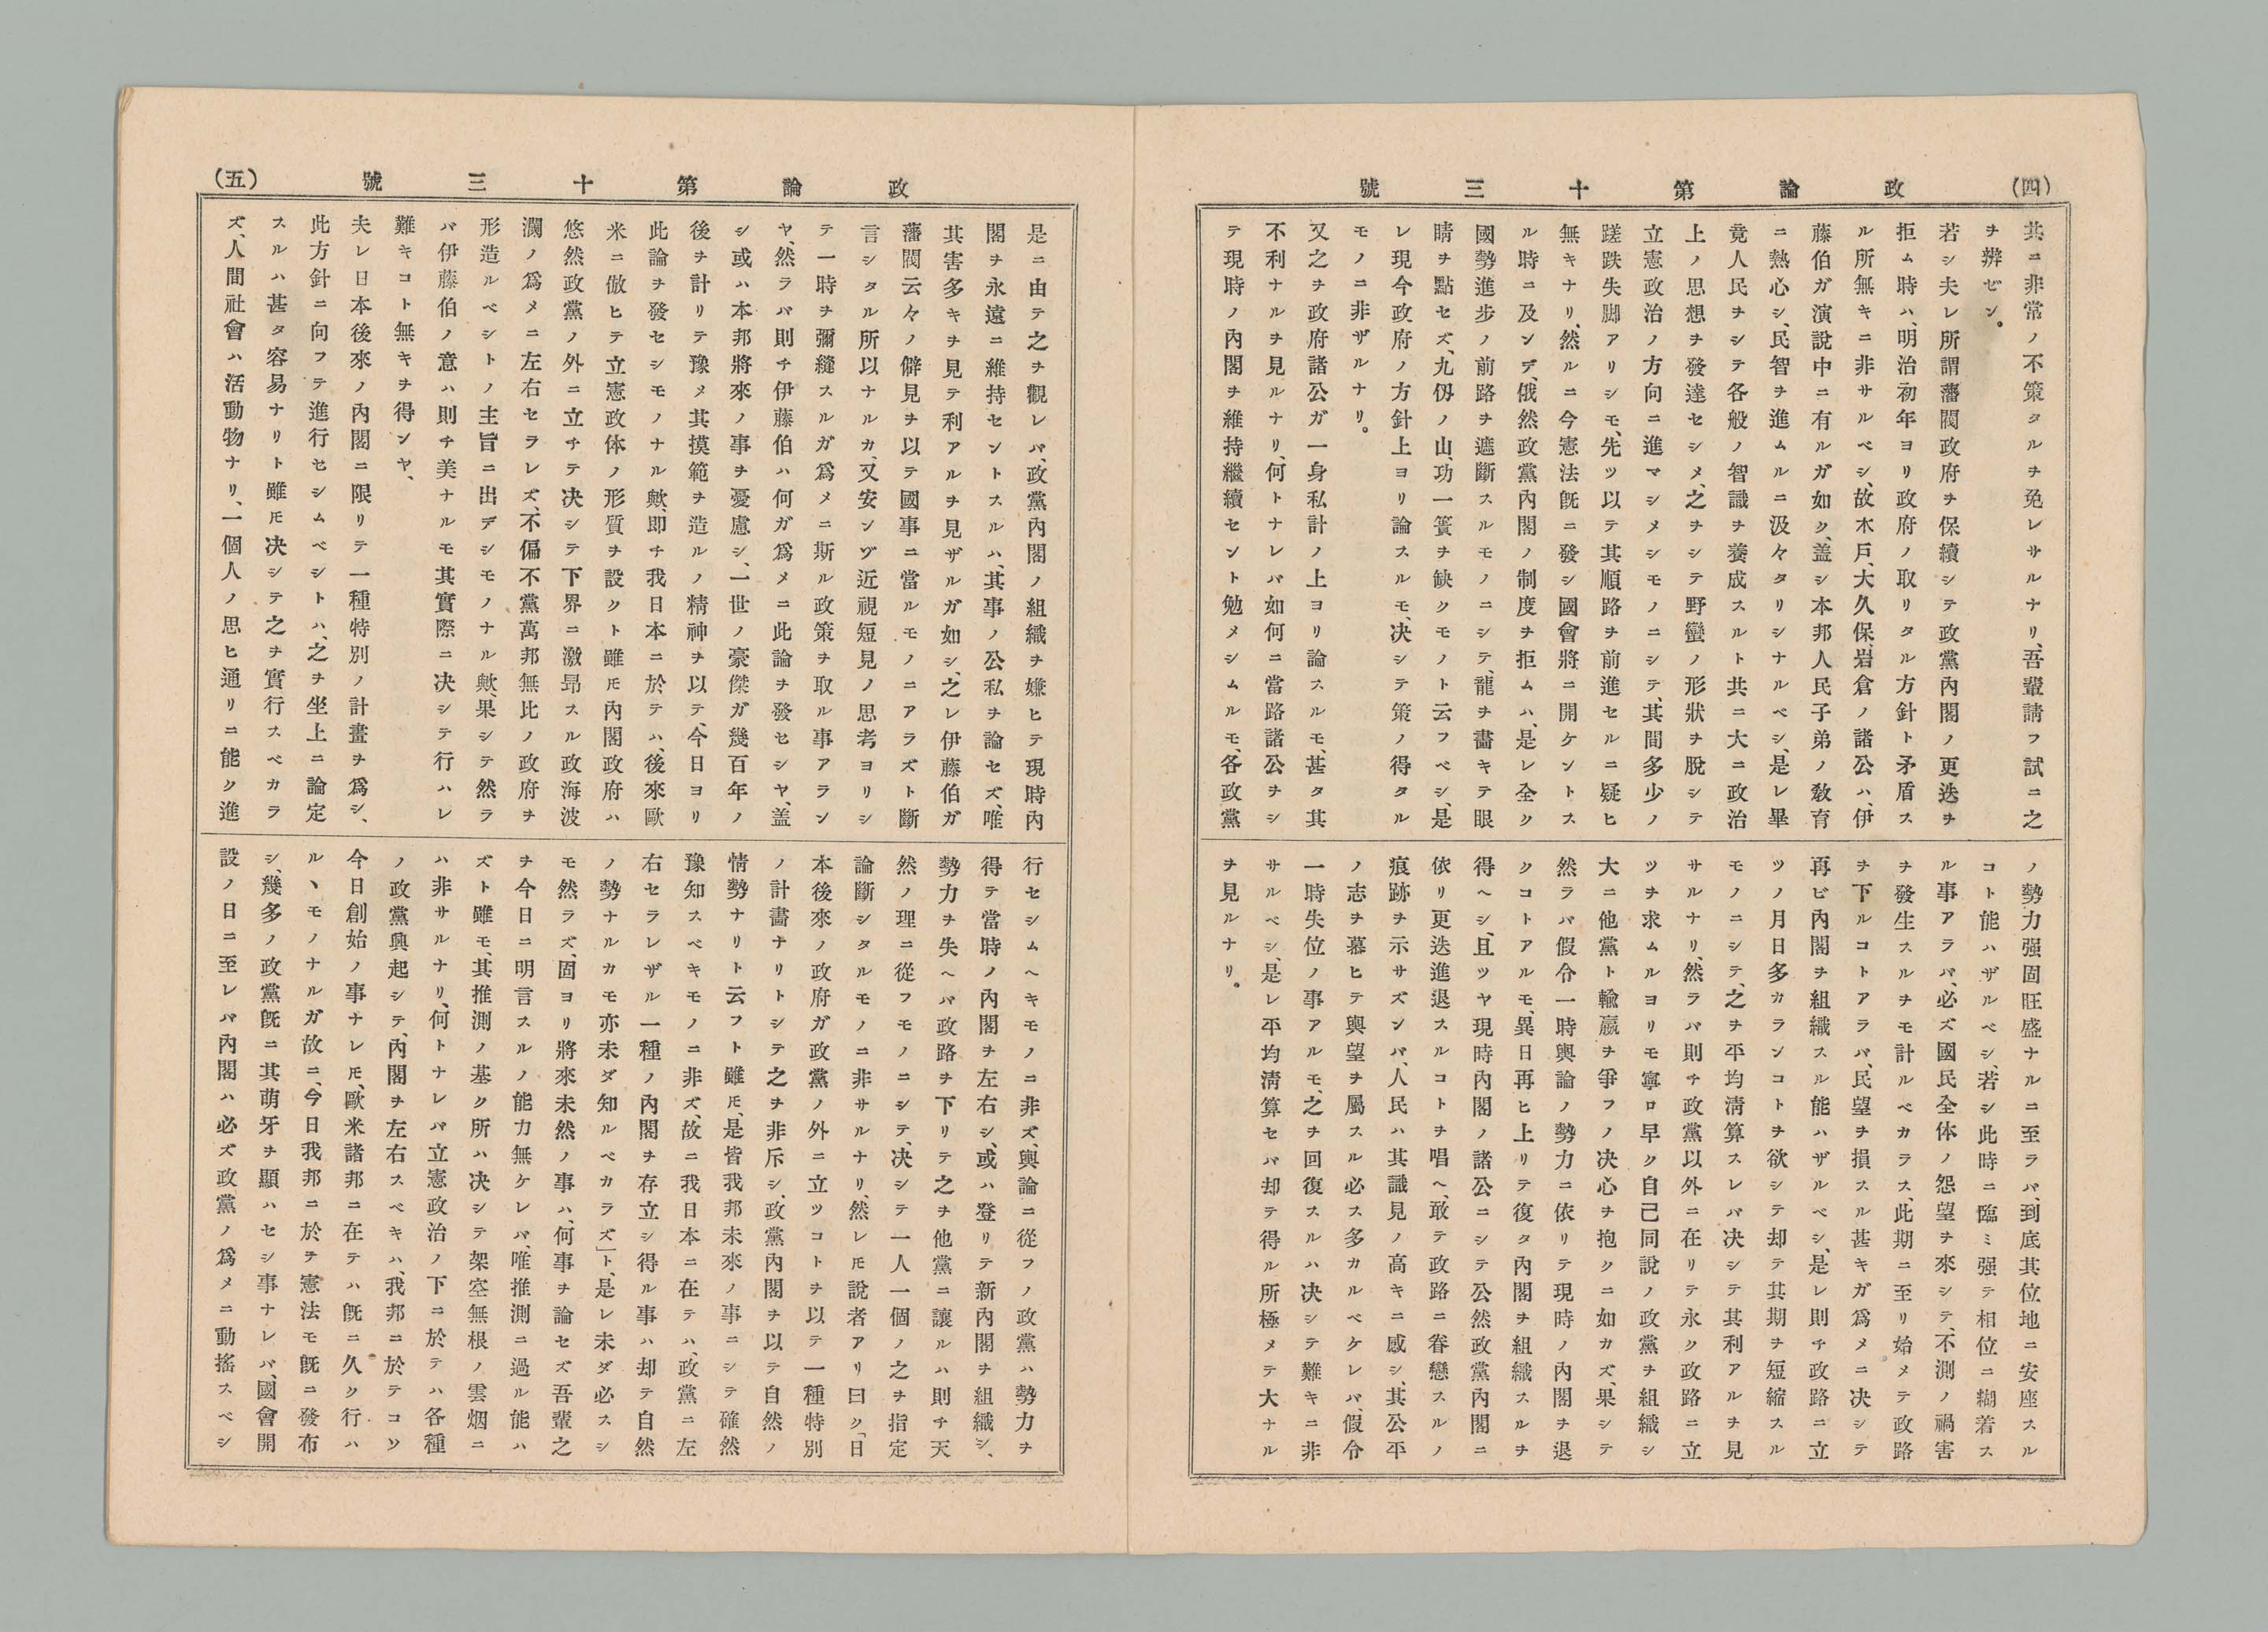 (四)
政論第十三號
其ニ非常ノ不策タルヲ免レサルナリ、吾輩請フ試ニ之
ヲ辨ゼン。
若シ夫レ所謂藩閥政府ヲ保續シテ政黨內閣ノ更迭ヲ
拒ム時ハ、明治初年ヨリ政府ノ取リタル方針ト矛盾ス
ル所無キニ非サルベシ、故木戶、大久保、岩倉ノ諸公ハ、伊
藤伯ガ演說中ニ有ルガ如ク、盖シ本邦人民子弟ノ敎育
ニ熱心シ、民智ヲ進ムルニ汲々タリシナルベシ、是レ畢
竟人民ヲシテ各般ノ智識ヲ養成スルト共ニ大ニ政治
上ノ思想ヲ發達セシメ、之ヲシテ野蠻ノ形狀ヲ脫シテ
立憲政治ノ方向ニ進マシメシモノニシテ、其間多少ノ
蹉跌失脚アリシモ、先ツ以テ其順路ヲ前進セルニ疑ヒ
無キナリ、然ルニ今憲法旣ニ發シ國會將ニ開ケントス
ル時ニ及ンデ、俄然政黨內閣ノ制度ヲ拒ムハ、是レ全ク
國勢進步ノ前路ヲ遮斷スルモノニシテ、龍ヲ畵キテ眼
睛ヲ點セズ、九仭ノ山、功一簣ヲ缺クモノト云フベシ、是
レ現今政府ノ方針上ヨリ論スルモ、决シテ策ノ得タル
モノニ非ザルナリ。
又之ヲ政府諸公ガ一身私計ノ上ヨリ論スルモ、甚タ其
不利ナルヲ見ルナリ、何トナレバ如何ニ當路諸公ヲシ
テ現時ノ內閣ヲ維持繼續セント勉メシムルモ、各政黨
ノ勢力强固旺盛ナルニ至ラバ、到底其位地ニ安座スル
コト能ハザルベシ、若シ此時ニ臨ミ强テ相位ニ糊着ス
ル事アラバ、必ズ國民全体ノ怨望ヲ來シテ、不測ノ禍害
ヲ發生スルヲモ計ルベカラス、此期ニ至リ始メテ政路
ヲ下ルコトアラバ、民望ヲ損スル甚キガ爲メニ决シテ
再ビ內閣ヲ組織スル能ハザルベシ、是レ則チ政路ニ立
ツノ月日多カランコトヲ欲シテ却テ其期ヲ短縮スル
モノニシテ、之ヲ平均淸算スレバ决シテ其利アルヲ見
サルナリ、然ラバ則チ政黨以外ニ在リテ永ク政路ニ立
ツヲ求ムルヨリモ寧ロ早ク自己同說ノ政黨ヲ組織シ
大ニ他黨ト輸嬴ヲ爭フノ决心ヲ抱クニ如カズ、果シテ
然ラバ假令一時輿論ノ勢力ニ依リテ現時ノ內閣ヲ退
クコトアルモ、異日再ヒ上リテ復タ內閣ヲ組織スルヲ
得ヘシ、且ツヤ現時內閣ノ諸公ニシテ公然政黨內閣ニ
依リ更迭進退スルコトヲ唱ヘ、敢テ政路ニ眷戀スルノ
痕跡ヲ示サズンバ、人民ハ其識見ノ高キニ感シ、其公平
ノ志ヲ慕ヒテ輿望ヲ屬スル必ス多カルベケレバ、假令
一時失位ノ事アルモ、之ヲ回復スルハ决シテ難キニ非
サルベシ、是レ平均淸算セバ却テ得ル所極メテ大ナル
ヲ見ルナリ。
(五)
政論第十三號
是ニ由テ之ヲ觀レバ、政黨內閣ノ組織ヲ嫌ヒテ現時內
閣ヲ永遠ニ維持セントスルハ、其事ノ公私ヲ論セズ、唯
其害多キヲ見テ利アルヲ見ザルガ如シ、之レ伊藤伯ガ
藩閥云々ノ僻見ヲ以テ國事ニ當ルモノニアラズト斷
言シタル所以ナルカ、又安ンゾ近視短見ノ思考ヨリシ
テ一時ヲ彌縫スルガ爲メニ斯ル政策ヲ取ル事アラン
ヤ、然ラバ則チ伊藤伯ハ何ガ爲メニ此論ヲ發セシヤ、盖
シ或ハ本邦將來ノ事ヲ憂慮シ、一世ノ豪傑ガ幾百年ノ
後ヲ計リテ豫メ其摸範ヲ造ルノ精神ヲ以テ、今日ヨリ
此論ヲ發セシモノナル歟、即チ我日本ニ於テハ、後來歐
米ニ倣ヒテ立憲政体ノ形質ヲ設クト雖モ內閣政府ハ
悠然政黨ノ外ニ立チテ决シテ下界ニ激昂スル政海波
瀾ノ爲メニ左右セラレズ、不偏不黨萬邦無比ノ政府ヲ
形造ルベシトノ主旨ニ出デシモノナル歟、果シテ然ラ
バ伊藤伯ノ意ハ則チ美ナルモ其實際ニ决シテ行ハレ
難キコト無キヲ得ンヤ、
夫レ日本後來ノ內閣ニ限リテ一種特別ノ計畫ヲ爲シ、
此方針ニ向フテ進行セシムベシトハ、之ヲ坐上ニ論定
スルハ甚タ容易ナリト雖モ决シテ之ヲ實行スベカラ
ズ、人間社會ハ活動物ナリ、一個人ノ思ヒ通リニ能ク進
行セシムヘキモノニ非ズ、輿論ニ從フノ政黨ハ勢力ヲ
得テ當時ノ內閣ヲ左右シ、或ハ登リテ新內閣ヲ組織シ、
勢力ヲ失ヘバ政路ヲ下リテ之ヲ他黨ニ讓ルハ則チ天
然ノ理ニ從フモノニシテ、决シテ一人一個ノ之ヲ指定
論斷シタルモノニ非サルナリ、然レモ說者アリ曰ク、「日
本後來ノ政府ガ政黨ノ外ニ立ツコトヲ以テ一種特別
ノ計畵ナリトシテ之ヲ非斥シ、政黨內閣ヲ以テ自然ノ
情勢ナリト云フト雖モ、是皆我邦未來ノ事ニシテ確然
豫知スベキモノニ非ズ、故ニ我日本ニ在テハ、政黨ニ左
右セラレザル一種ノ內閣ヲ存立シ得ル事ハ却テ自然
ノ勢ナルカモ亦未ダ知ルベカラズ」ト、是レ未ダ必スシ
モ然ラズ、固ヨリ將來未然ノ事ハ、何事ヲ論セズ吾輩之
ヲ今日ニ明言スルノ能力無ケレバ、唯推測ニ過ル能ハ
ズト雖モ、其推測ノ基ク所ハ决シテ架空無根ノ雲烟ニ
ハ非サルナリ、何トナレバ立憲政治ノ下ニ於テハ各種
ノ政黨興起シテ、內閣ヲ左右スベキハ、我邦ニ於テコソ
今日創始ノ事ナレモ、歐米諸邦ニ在テハ旣ニ久ク行ハ
ルヽモノナルガ故ニ、今日我邦ニ於ヲ憲法モ旣ニ發布
シ、幾多ノ政黨旣ニ其萌牙ヲ顯ハセシ事ナレバ、國會開
設ノ日ニ至レバ內閣ハ必ズ政黨ノ爲メニ動搖スベシ